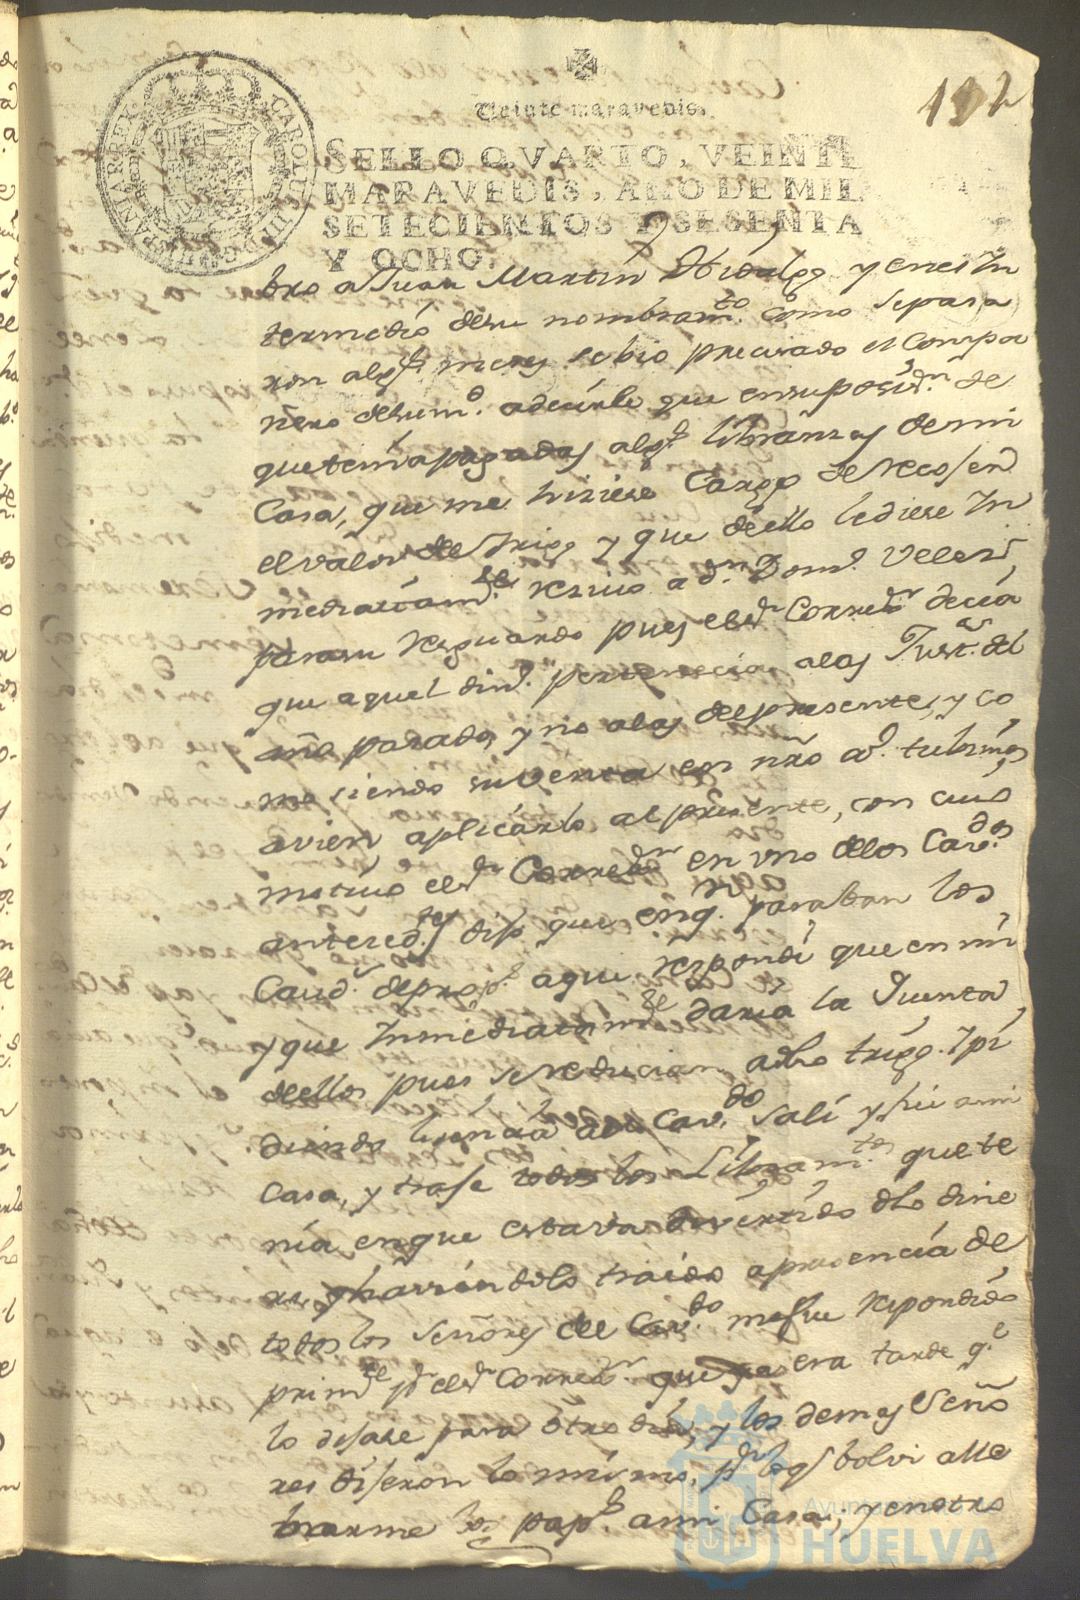 192
Veinte maravedis.
SELLO QVARTO, VEINTE
MARAVEDIS, AÑO DE MIL
SETECIENTOS Y SESENTA
Y OCHO.
CAROLUS III D G HISPANIAR REX
bro a Juan Martin Hidalgo y en el In
termedio de su nombramto. como se pasa
ron algs. meses se bio precisado el Compa
ñero de su md. a decirle que en suposicn. de
que tenia pagadas algs. libranzas de mi
Casa, que me hiziese Cargo de recojer
el valor del trigo y que de ello le diese In
mediatamte. recivo a dn. Domo. Velez,
para su resguardo pues el sr. Correxr. decia
que aquel dino. pertenecia a las Justas. del
año pasado, y no a las del presente, y co
mo siendo su venta en nro. ao. tubimos
a vien aplicarlo al presente, con cuio
motivo el sr. Correxr. en vno de los Cavdos.
antecedtes. dijo que en qn. paraban los
Caud. de prop. a que respondi que en mi
y que Inmediatamte. daria la Quenta
de ellos pues se reducian a dho trigo. Y pi
diendo licencia al Cavdo. sali y fui a mi
Casa, y traje todos los Libramtos. que te
nia en que estava divertido dho dine
ro, y haviendolo traido a presencia de
todos los Señores de Cavdo. me fue respondido
primte. pr. el sr. Correxr. que ya era tarde qe.
lo dejase para otro dia, y los demas Seño
res dijeron lo mismo, pr. lo qe. bolvi a lle
barme los paps. a mi Casa; y en otro
Ayuntamiento
HUELVA